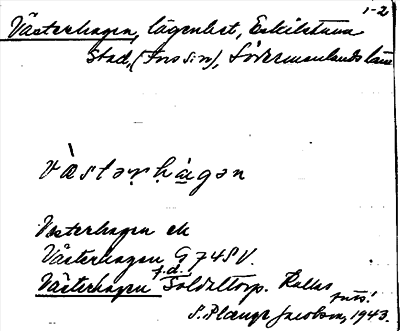 1-2
Västerhagen, lägenhet, Eskilstuna
Stad, (Fors sn), Södermanlands län
västərhagən
Vesterhagen ek
Västerhagen G 74 SV.
Västerhagen f.d. Soldattorp. Kallas
så!
S. Plænge Jacobson, 1943.